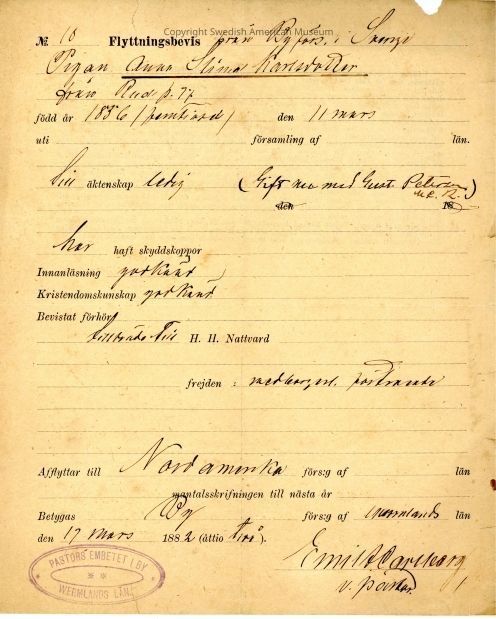 Copyright Swedish American Museum
№ 10 Flyttningsbevis från By förs. i Sverige
Pigan Anna Stina Karlsdotter
från Rud p. 77
född år 1856 (femtiosex) den 11 mars
uti församling af län.
Till äktenskap ledig (Gift nu med Gust. Peterson
den 18
har haft skyddskoppor
Innanläsning godkänd
Kristendomskunskap godkänd
Bevistat förhör
tillträde till H. H. Nattvard
frejden : medborgerl. förtroende
Afflyttar till Nordamerika förs:g af län
mantalsskrifningen till nästa år
Betygas By förs:g af Wermlands län
den 17 mars 1882 (åttio två).
Emil A Carlborg
v. pastor.
PASTORS EMBETET I BY
WERMLANDS LÄN